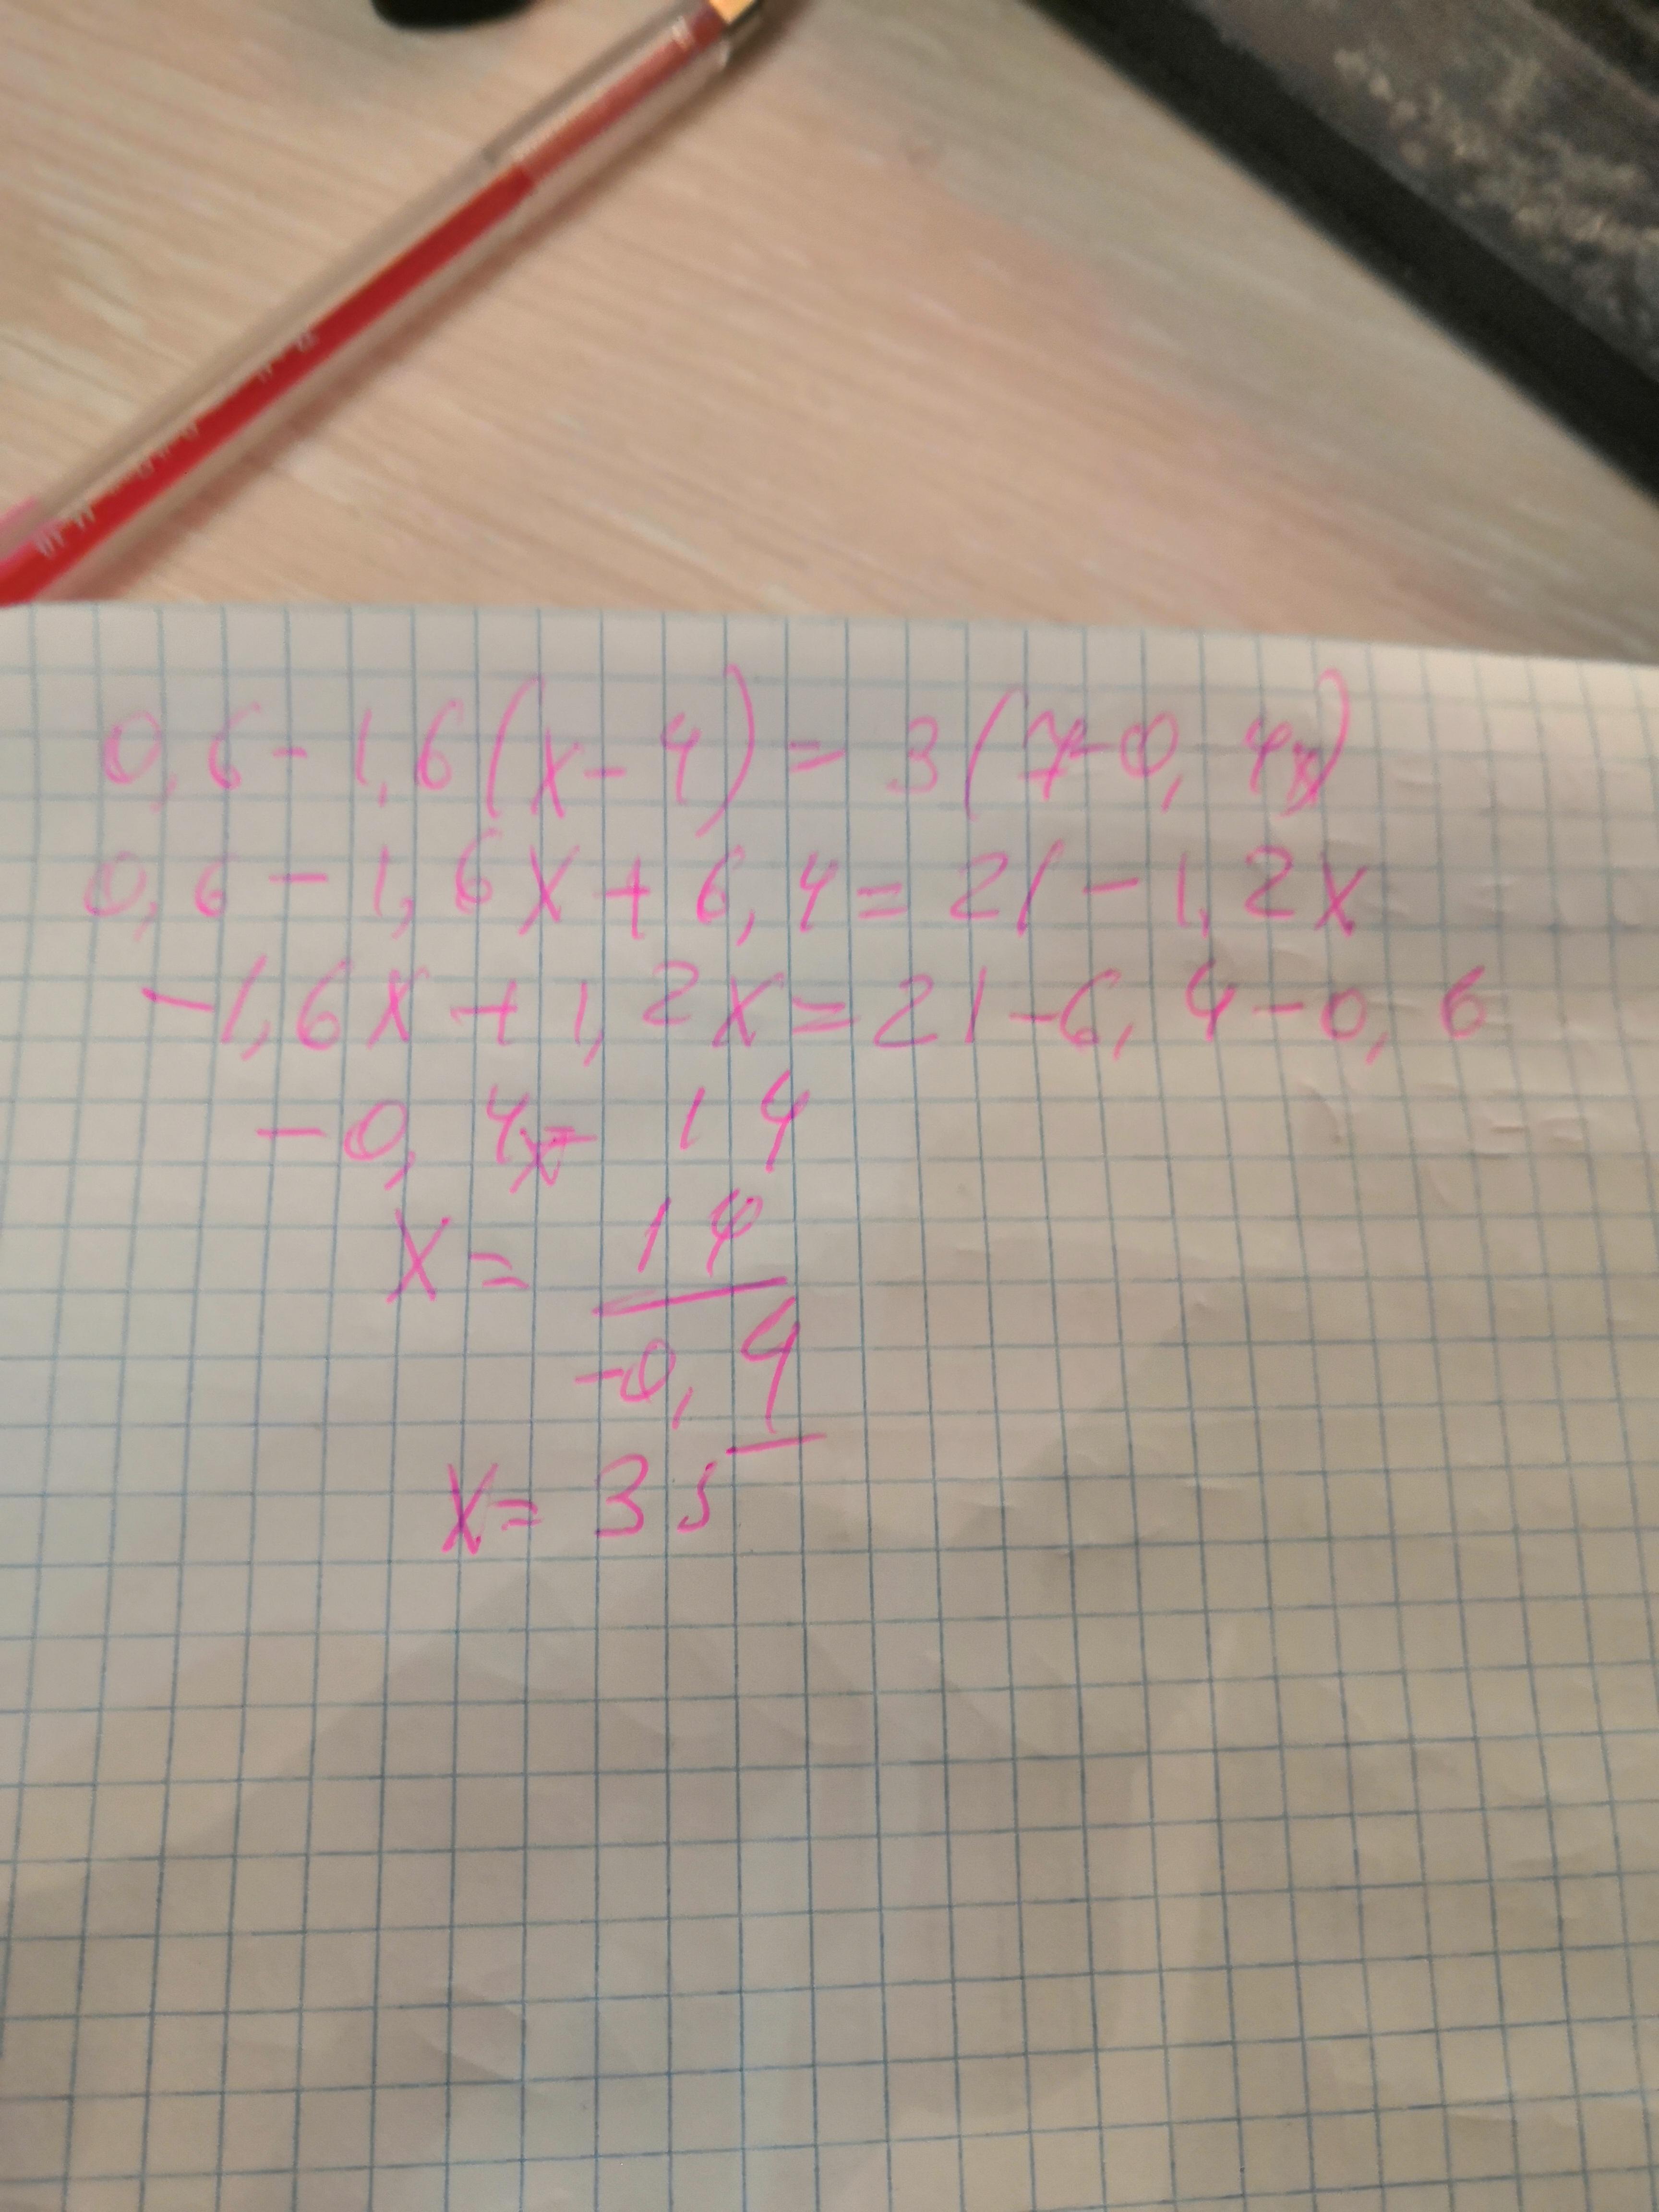 0,6-1,6(x-4)=3(7-0,4x)
0,6-1,6x+6,4=21-1,2x
-1,6x+1,2x=21-6,4-0,6
-0,4x=14
x=14
-0,4
x=35